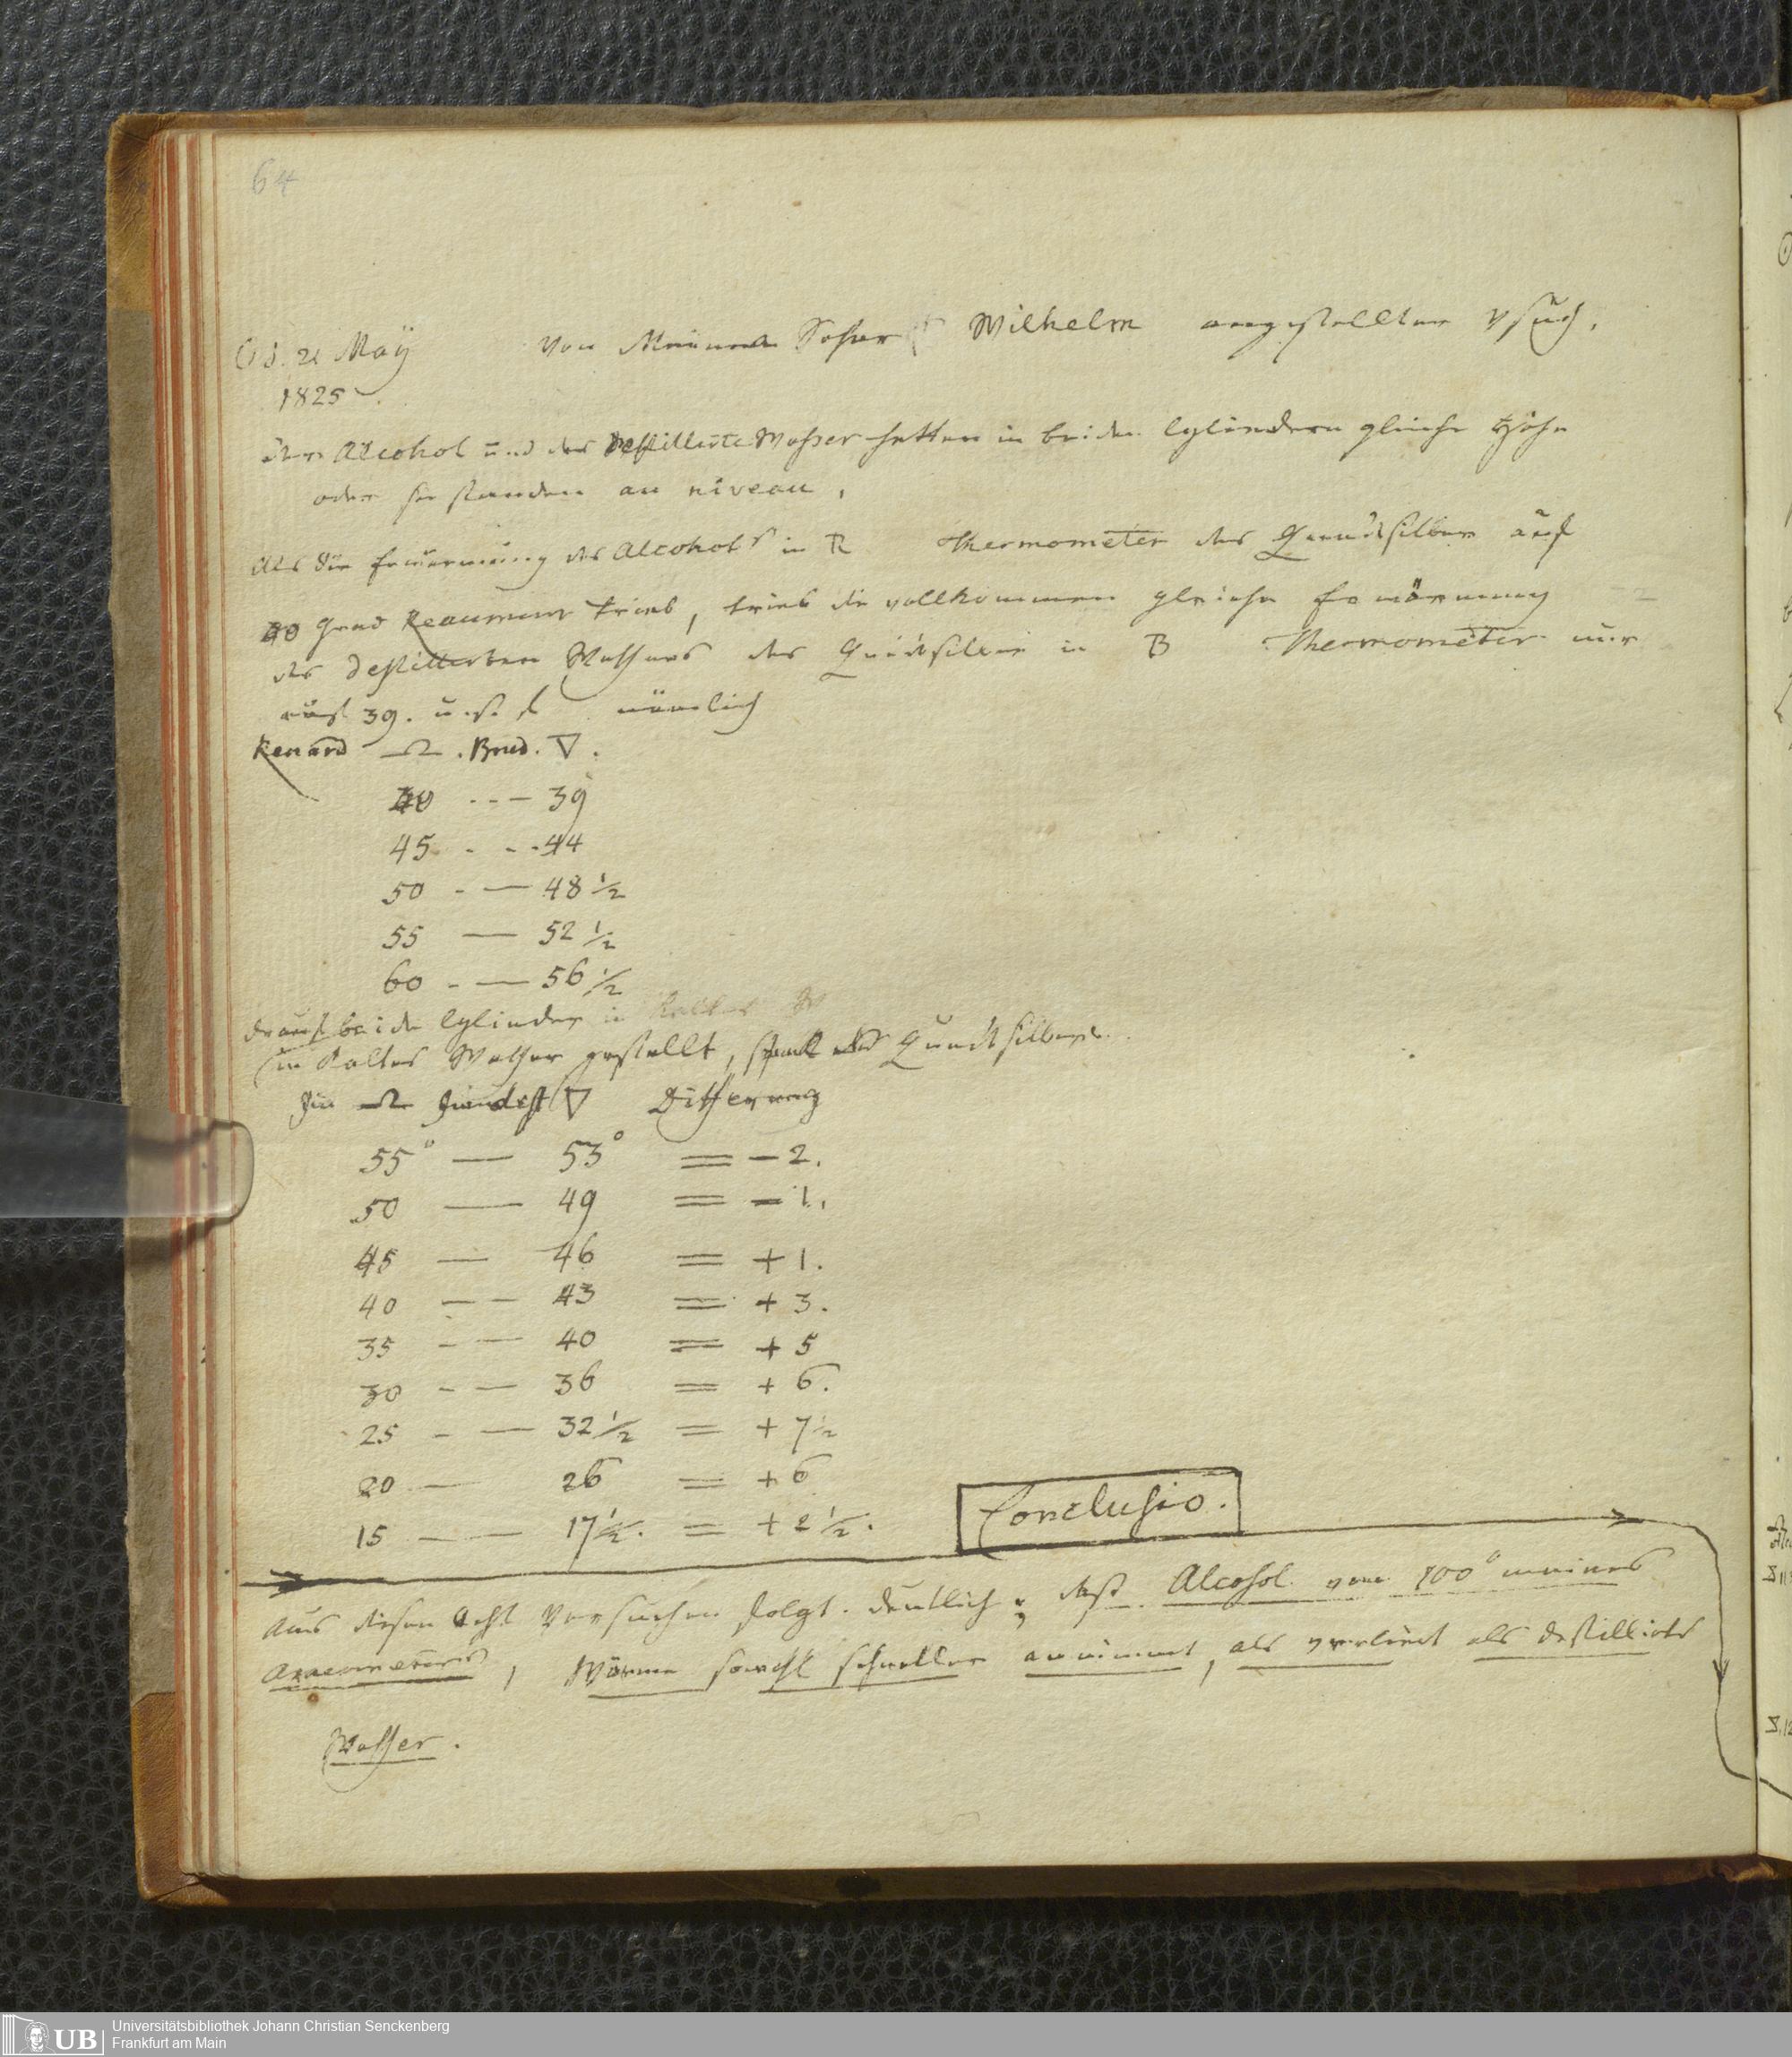 64
d. 21 May
1825
Von Meinem Sohne Wilhelm angestellter Vsuch,
der Alcohol und das destillirte Waßer hatten in beiden Cylindern gleiche Höhe
oder sie standen au niveau,
Als die Erwärmung des Alcohols in R Thermometer das Quecksilber auf
40 Grad Reaumur trieb, trieb die vollkommen gleiche Erwärmung
des destillirten Waßers das Quecksilber in B Thermometer nur
auf 39. u. s. f. nämlich
Renard . Bned. ▽.
40 --- 39
45 - - - 44
50 - — 48 1/2
55 — 52 1/2
60 - — 56 1/2
drauf beide Cylinder in kaltes W
in kaltes Waßer gestellt, Quecksilber
Im ▽ Differenz
55° — 53° = - 2.
50 — 49 = - 1.
45 — 46 = + 1.
40 — — 43 = + 3.
35 - — 40 = + 5
30 - — 36 = + 6.
25 - — 32 1/2 = + 7 1/2
20 — 26 = + 6
15 — — 17 1/2. = + 2 1/2.
Conclusio.
Aus diesen acht Versuchen folgt deutlich; daß Alcohol von 100° meines
Araeometers, Wärme sowohl schneller annimmt, als verliert als destillirtes
Waßer.
UB
Universitätsbibliothek Johann Christian Senckenberg
Frankfurt am Main